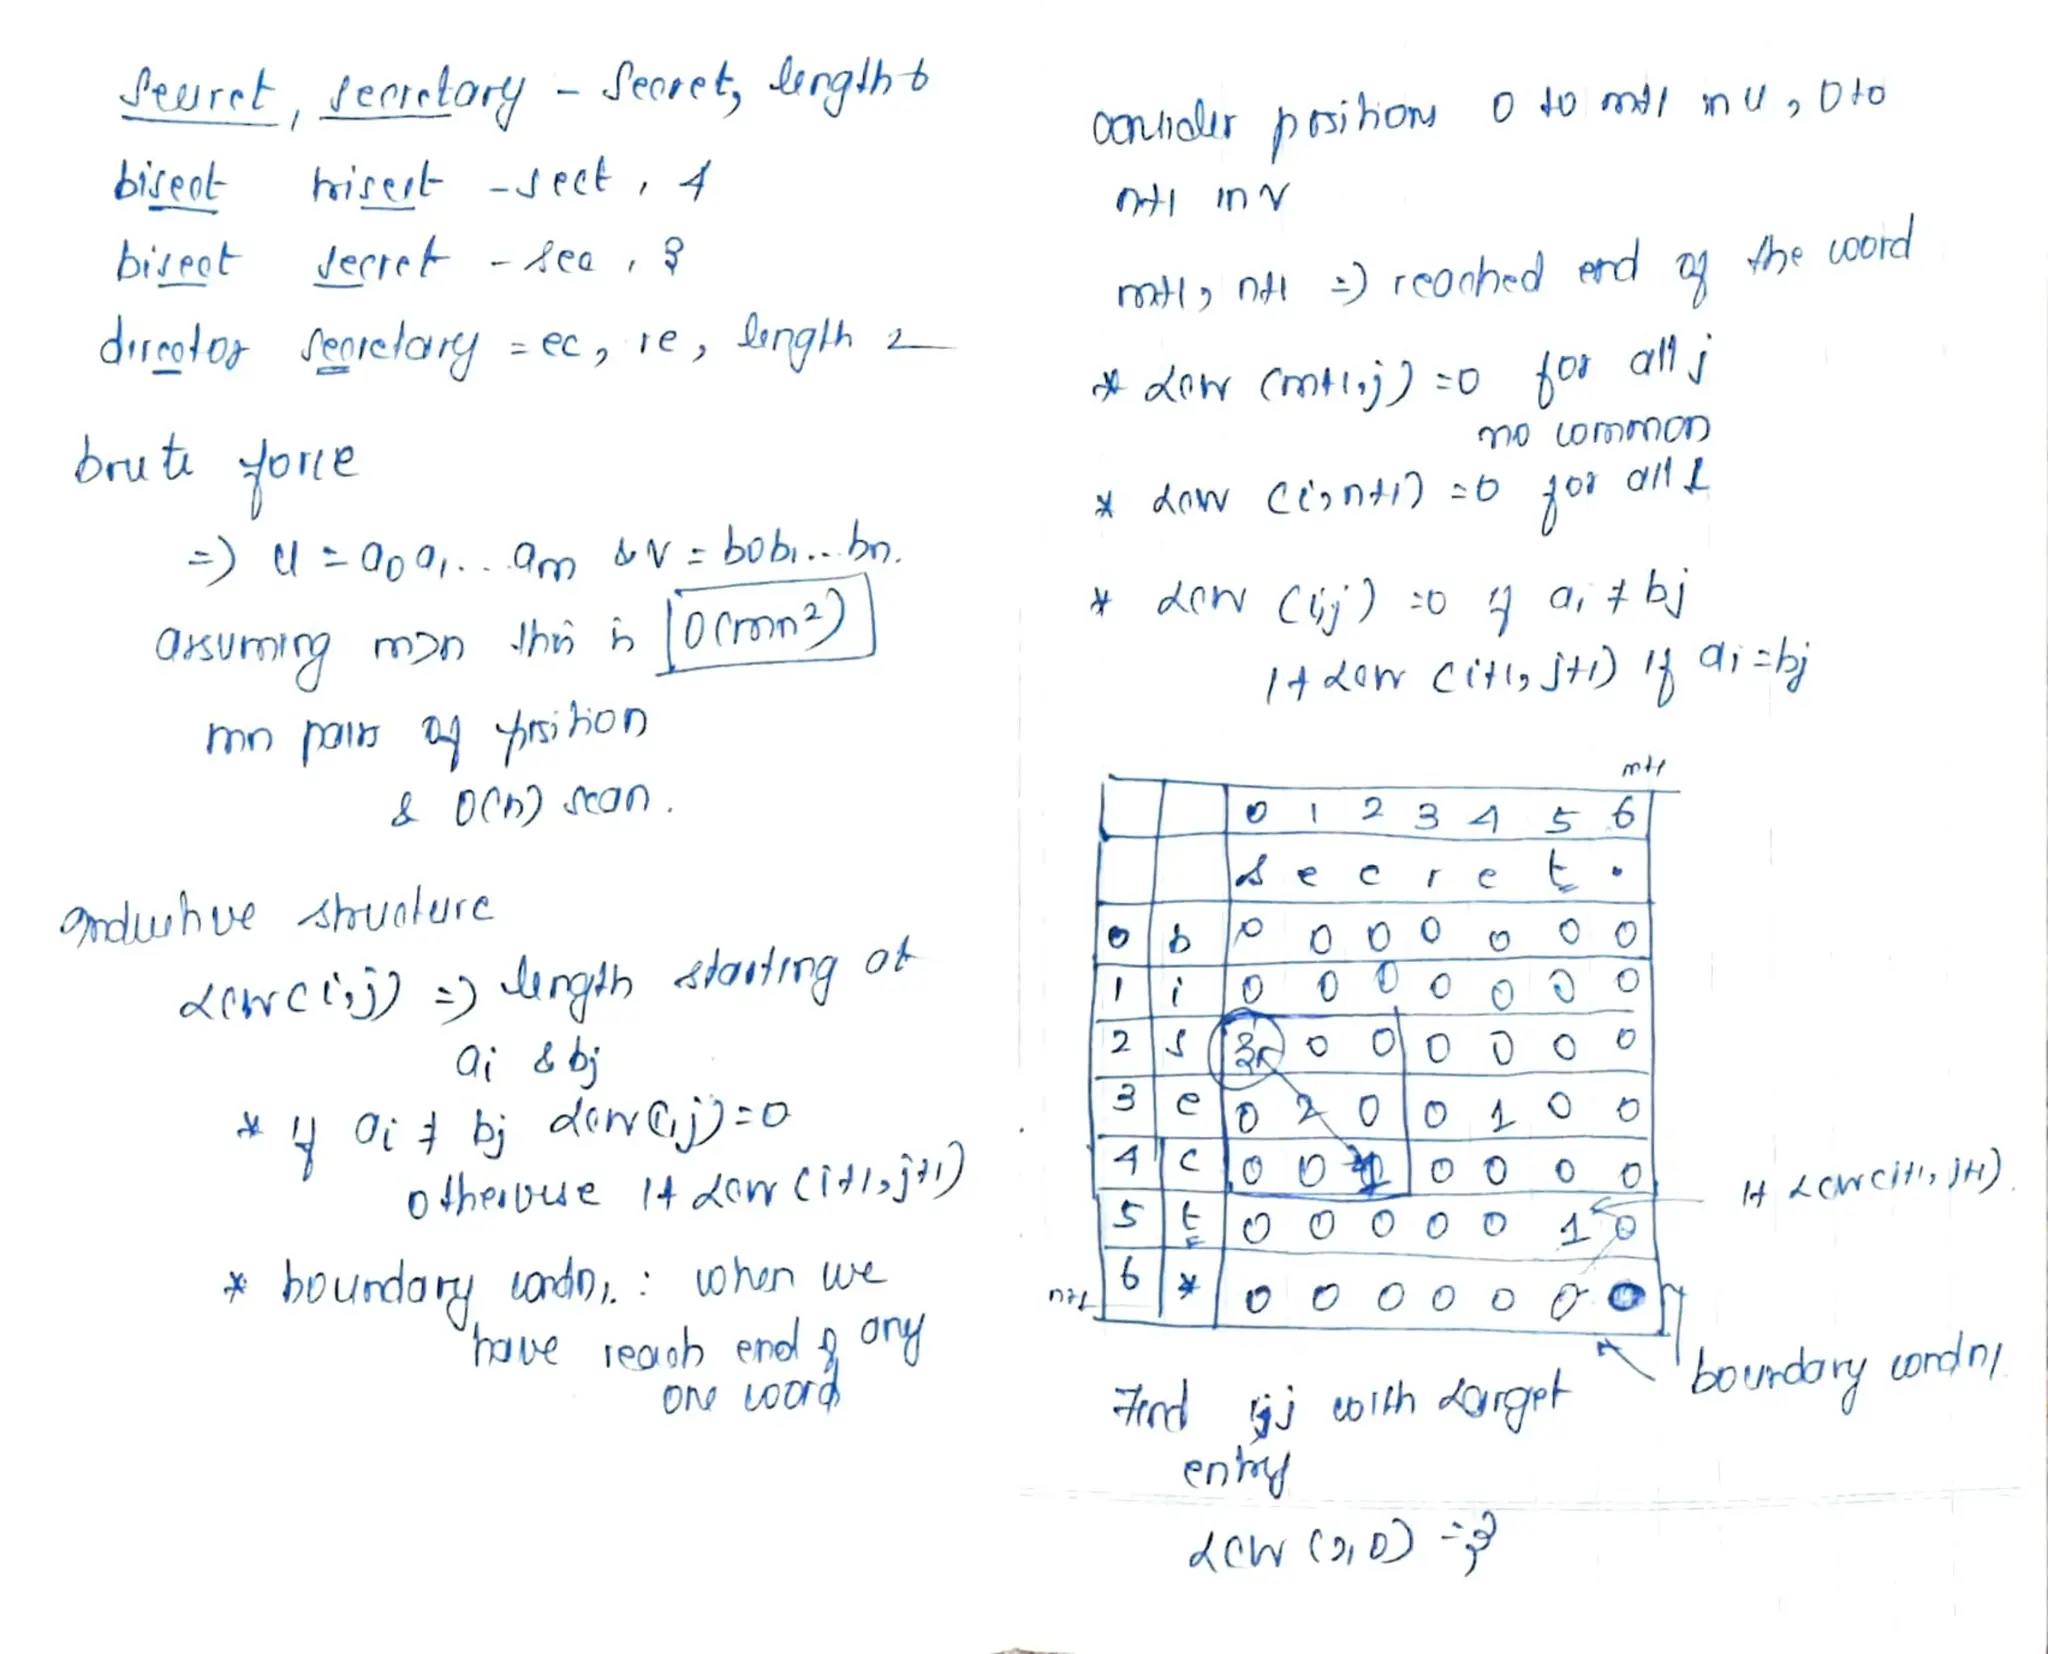 secret, secretary - Secret, length 6
bisect trisect - sect, 4
bisect secret - sec, 3
director secretary = ec, re, length 2
brute force
=) U = a0 a1... am & V = b0b1...bn.
assuming m>n this is O(mn²)
mn pairs of position
& O(n) scan.
Inductive structure
LCW(i,j) =) length starting at
ai & bj
* if ai ≠ bj LCW(i,j)=0
otherwise 1+ LCW (i+1,j+1)
* boundary condn. : when we
have reach end of any
one word
consider positions 0 to m+1 in U, 0 to
n+1 in V
m+1, n+1 =) reached end of the word
* LCW (m+1,j) =0 for all j
no common
* LCW (i,n+1) =0 for all i
* LCW (i,j) =0 if ai ≠ bj
1+ LCW (i+1, j+1) if ai =bj
m+1
0 1 2 3 4 5 6
s e c r e t •
0 b 0 0 0 0 0 0 0
1 i 0 0 0 0 0 0 0
2 s 3 0 0 0 0 0 0
3 e 0 2 0 0 1 0 0
4 c 0 0 1 0 0 0 0
1+ LCW(i+1, j+1)
5 t 0 0 0 0 0 1 0
n+1 6 * 0 0 0 0 0 0 0
boundary condn
Find i,j with Largest
entry
LCW (2,0) =3